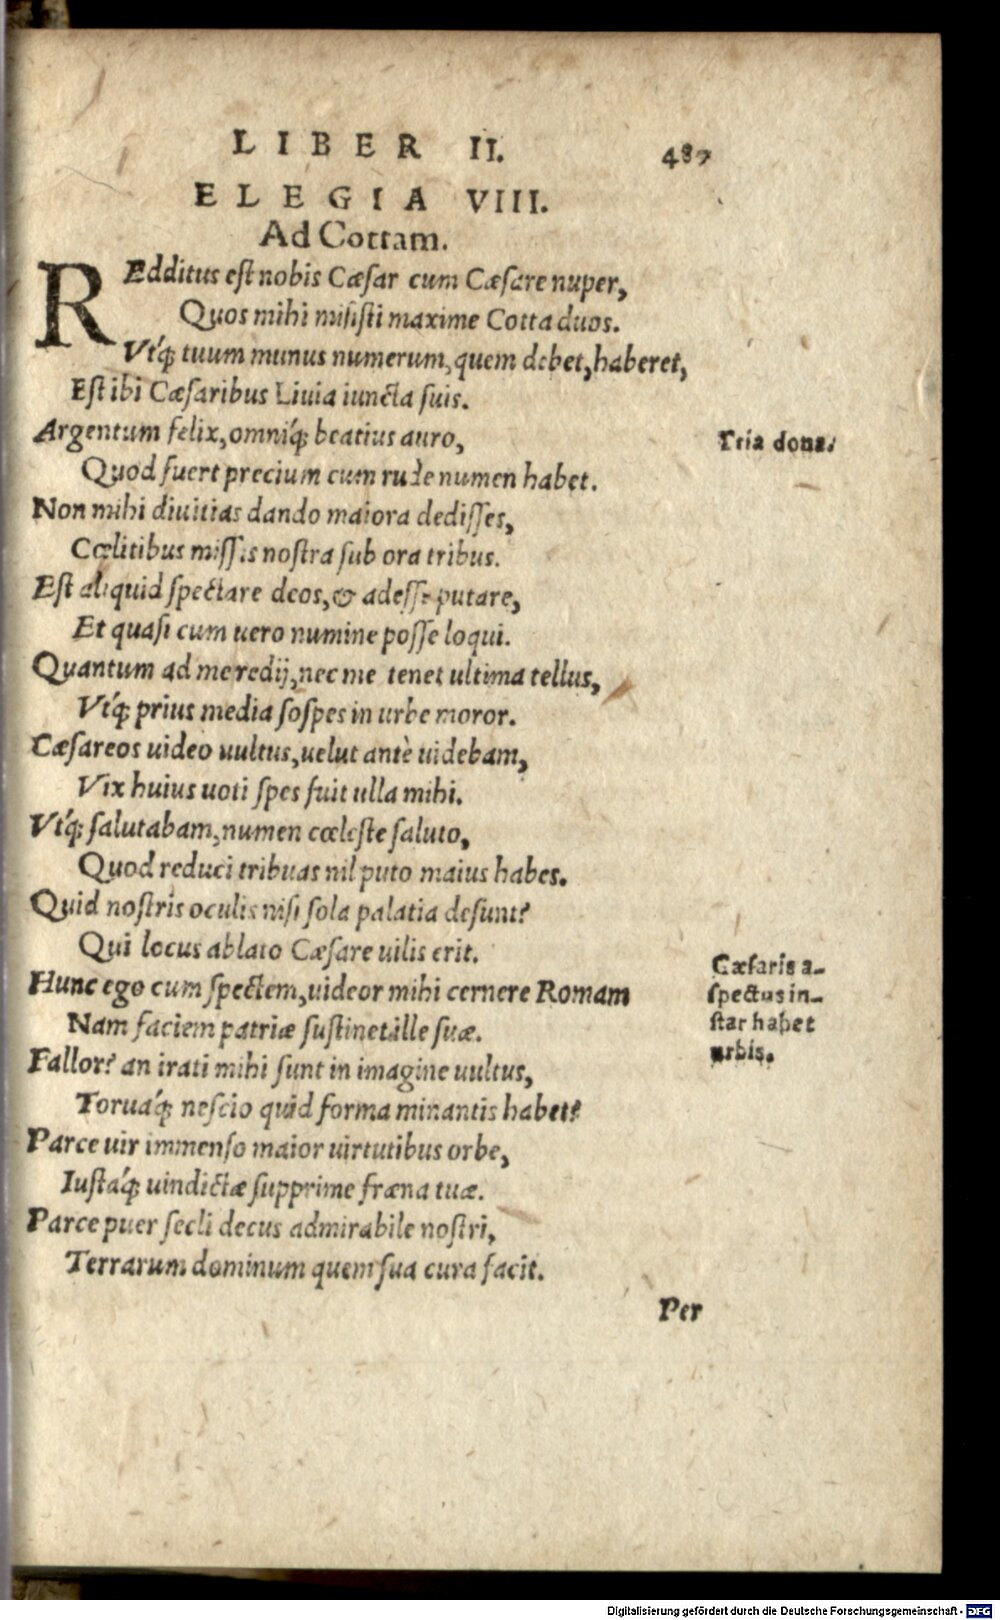 LIBER II. 487
ELEGIA VIII.
Ad Cottam.
REdditus est nobis Cæsar cum Cæsare nuper,
Quos mihi misisti maxime Cotta duos.
Vtq́; tuum munus numerum, quem debet, haberet,
Est ibi Cæsaribus Liuia iuncta suis.
Argentum felix, omniq́; beatius auro,
Tria dona.
Quod fuert precium cum rude numen habet.
Non mihi diuitias dando maiora dedisses,
Cœlitibus missis nostra sub ora tribus.
Est aliquid spectare deos, & adesse putare,
Et quasi cum uero numine posse loqui.
Quantum ad me redij, nec me tenet ultima tellus,
Vtq́; prius media sospes in urbe moror.
Cæsareos uideo uultus, uelut antè uidebam,
Vix huius uoti spes fuit ulla mihi.
Vtq́; salutabam, numen cœleste saluto,
Quod reduci tribuas nil puto maius habes.
Quid nostris oculis nisi sola palatia desunt?
Qui locus ablato Cæsare uilis erit.
Hunc ego cum spectem, uideor mihi cernere Romam
Cæsaris a-
spectus in-
star habet
urbis.
Nam faciem patriæ sustinet ille suæ.
Fallor? an irati mihi sunt in imagine uultus,
Toruaq́; nescio quid forma minantis habet?
Parce uir immenso maior uirtutibus orbe,
Iustaq́; uindictæ supprime fræna tuæ.
Parce puer secli decus admirabile nostri,
Terrarum dominum quem sua cura facit.
Per
Digitalisierung gefördert durch die Deutsche Forschungsgemeinschaft - DFG